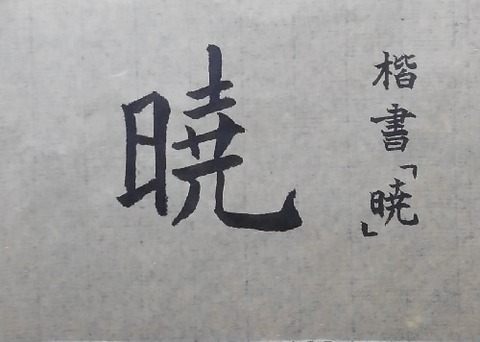 楷書「暁」
暁